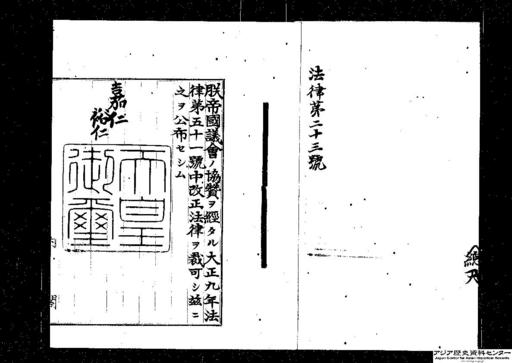 法律第二十三號
朕帝國議會ノ協贊ヲ經タル大正九年法
律第五十一號中改正法律ヲ裁可シ茲ニ
之ヲ公布セシム
嘉仁
裕仁
天皇
御璽
内閣
アジア歴史資料センター
Japan Center for Asian Historical Records